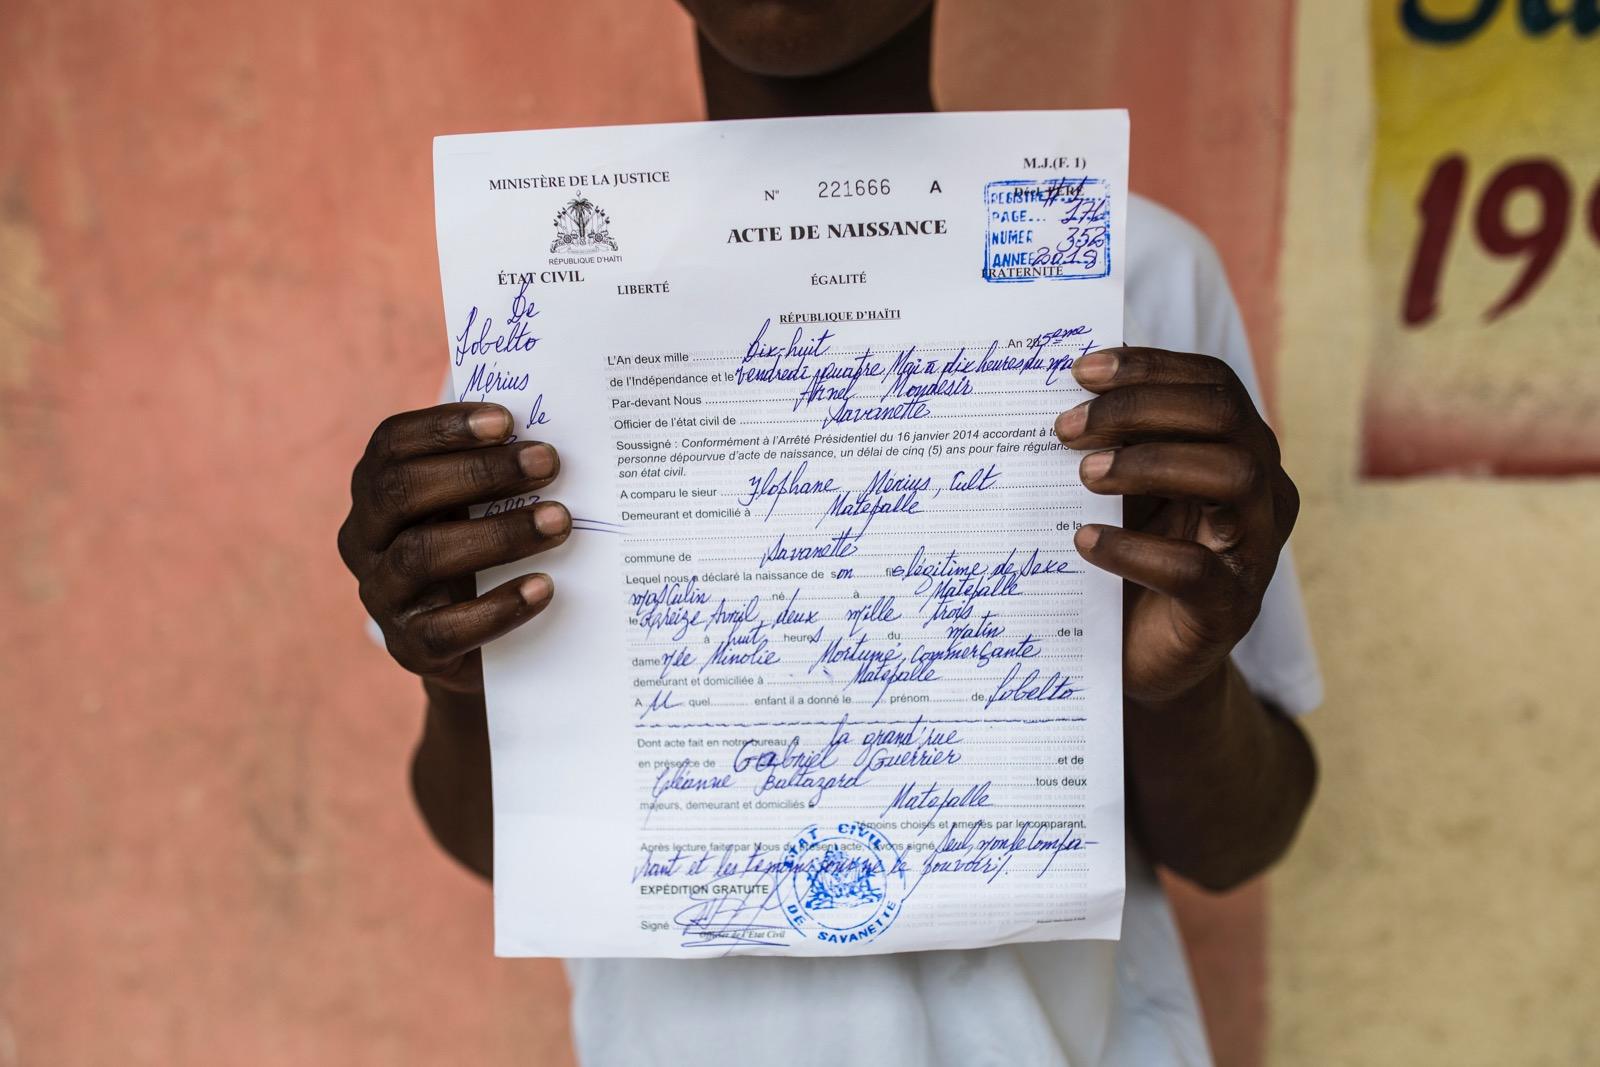 MINISTÈRE DE LA JUSTICE
RÉPUBLIQUE D'HAÏTI
ÉTAT CIVIL
N° 221666 A
ACTE DE NAISSANCE
M.J.(F. 1)
REGISTRE
PAGE... 171
NUMER 352
ANNEE 2018
LIBERTÉ ÉGALITÉ FRATERNITÉ
RÉPUBLIQUE D'HAÏTI
De
Lobelto
Mérius
le
2003
L'An deux mille Dix-huit An 215ème
de l'Indépendance et le vendredi quatre Mai à dix heures du mat
Par-devant Nous Arnel Mondesir
Officier de l'état civil de Savanette
Soussigné : Conformément à l'Arrêté Présidentiel du 16 janvier 2014 accordant à
personne dépourvue d'acte de naissance, un délai de cinq (5) ans pour faire régularis
son état civil.
A comparu le sieur Ylophane Mérius, Cult
Demeurant et domicilié à Matepalle
de la
commune de Savanette
Lequel nous a déclaré la naissance de son fils légitime de Sexe
masculin né à Matepalle
le treize Avril deux mille trois
à huit heures du matin de la
dame née Minolie Mortumé, commerçante
demeurant et domiciliée à Matepalle
A quel enfant il a donné le prénom de Lobelto
Dont acte fait en notre bureau, à la grand'rue
en présence de Gabriel Guerrier et de
Cléanne Baltazard tous deux
majeurs, demeurant et domiciliés à Matepalle
Témoins choisis et amenés par le comparant.
Après lecture faite par Nous du présent acte, l'avons signé Seul, non le Compa-
rant et les témoins pour ne le pouvoir/.
EXPÉDITION GRATUITE
Signé
Officier de l'Etat Civil
ETAT CIVIL
DE SAVANETTE
199